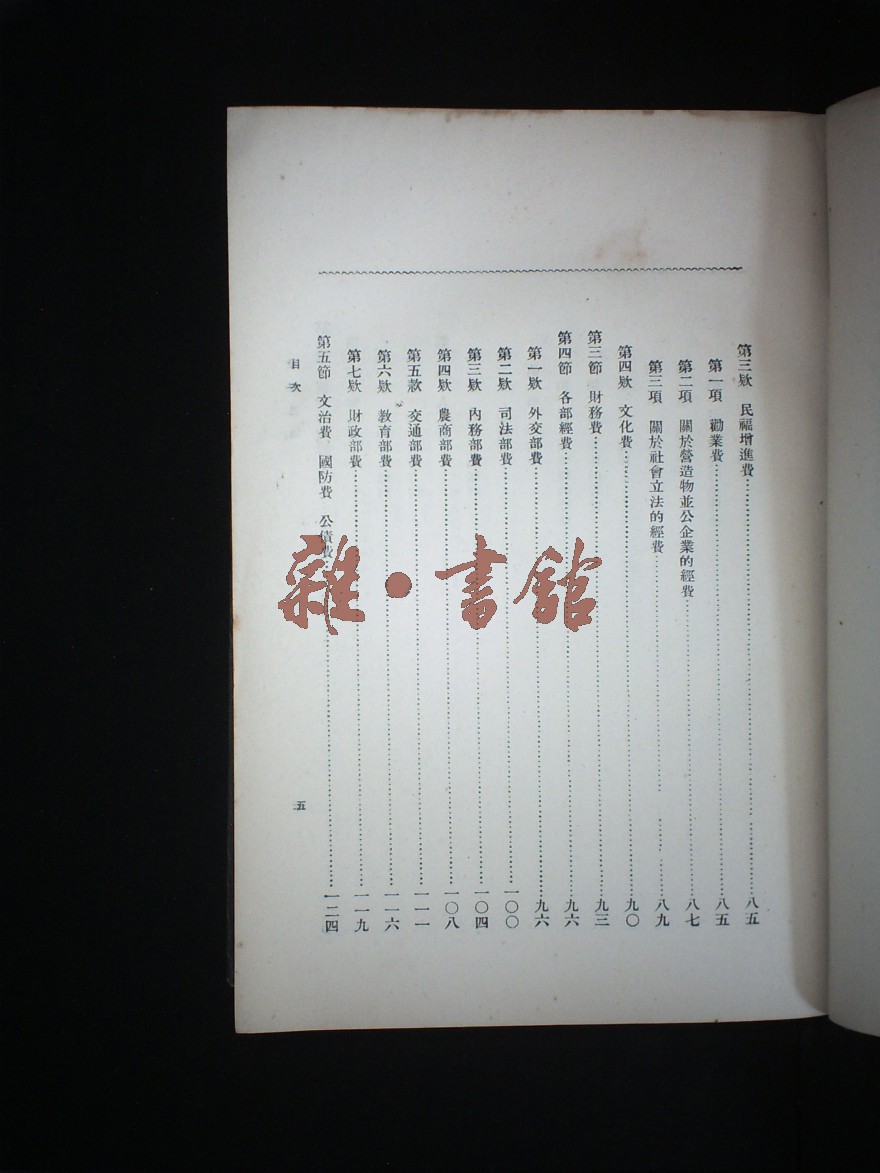 第三欵 民福增進費……八五
第一項 勸業費……八五
第二項 關於營造物並公企業的經費……八七
第三項 關於社會立法的經費……八九
第四欵 文化費……九〇
第三節 財務費……九三
第四節 各部經費……九六
第一欵 外交部費……九六
第二欵 司法部費……一〇〇
第三欵 內務部費……一〇四
第四欵 農商部費……一〇八
第五款 交通部費……一一一
第六欵 教育部費……一一六
第七欵 財政部費……一一九
第五節 文治費 國防費 公債費……一二四
目次
五
雜·書館